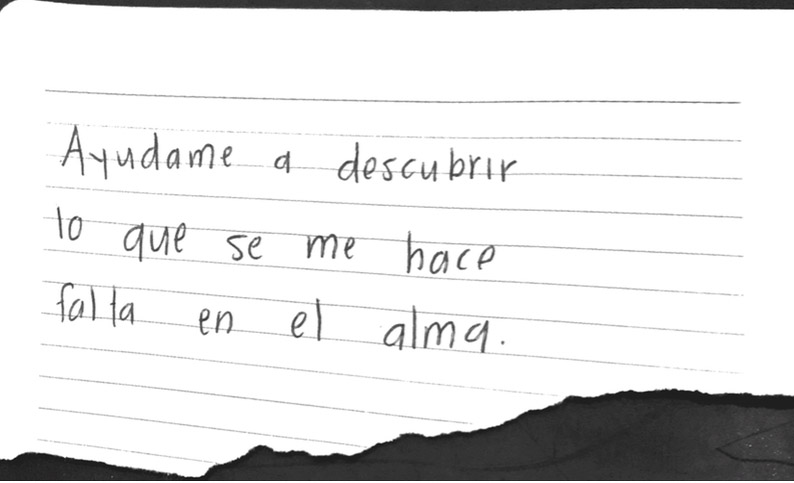 Ayudame a descubrir
lo que se me hace
falta en el alma.